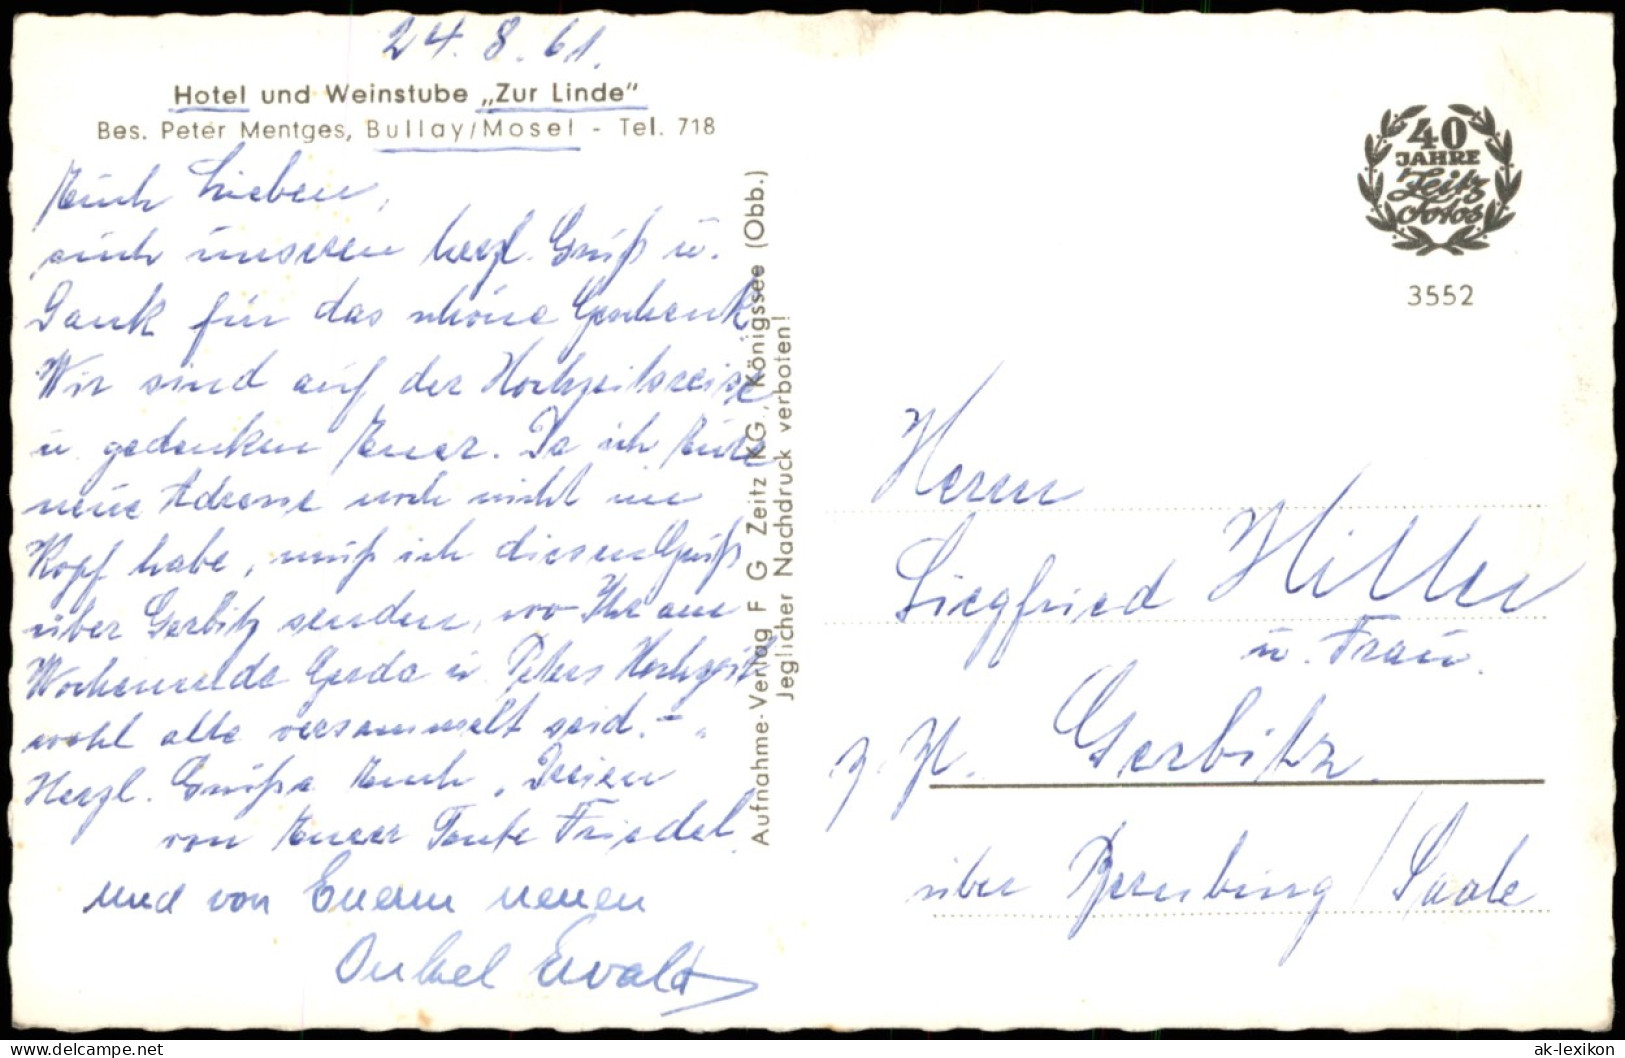 24.8.61.
Hotel und Weinstube „Zur Linde"
Bes. Peter Mentges, Bullay/Mosel - Tel. 718
Euch Lieben,
auch unseren herzl. Gruß u.
Dank für das schöne Geschenk
Wir sind auf der Hochzeitsreise
u. gedenken Euer. Da ich Eure
neue Adresse noch nicht im
Kopf habe, muß ich diesen Gruß
über Gerbitz senden, wo Ihr am
Wochenende Gerda u. Peters Hochzeit
wohl alle versammelt seid. -
Herzl. Grüße Euch Dreien
von Eurer Tante Friedel
und von Euerm neuen
Onkel Ewald
Aufnahme-Verlag F G Zeitz KG., Königssee (Obb.)
Jeglicher Nachdruck verboten!
40
JAHRE
Zeitz
Fotos
3552
Herrn
Siegfried Hiller
u. Frau.
z. Zt. Gerbitz
über Bernburg / Saale
ak-lexikon